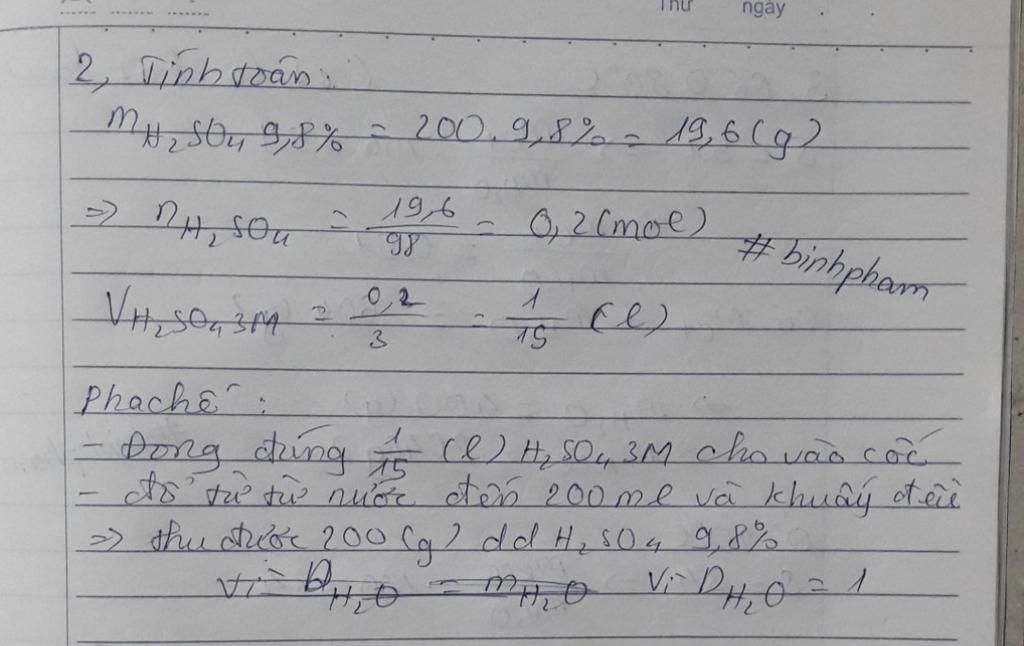 Thứ ngày . .
2, Tính toán:
mH₂SO₄ 9,8% = 200. 9,8% = 19,6 (g)
=> nH₂SO₄ = 19,6/98 = 0,2 (mol)
#binhpham
VH₂SO₄ 3M = 0,2/3 = 1/15 (l)
Pha chế:
- Đong đúng 1/15 (l) H₂SO₄ 3M cho vào cốc
- đổ từ từ nước đến 200 ml và khuấy đều
=> thu được 200 (g) dd H₂SO₄ 9,8%
Vì DH₂O = mH₂O Vì DH₂O = 1